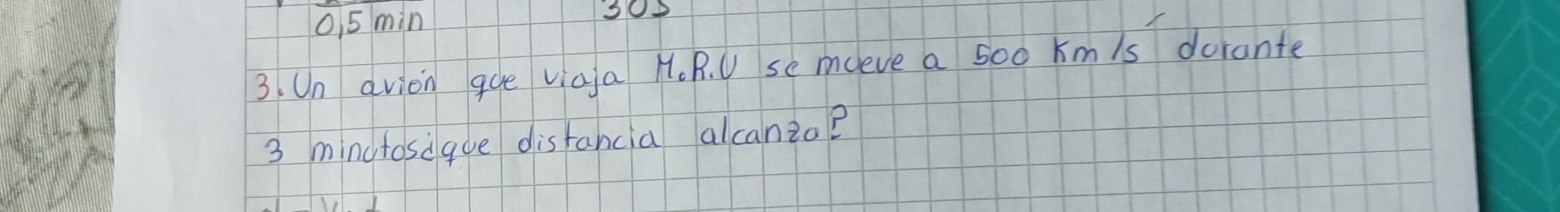 0,5 min 30s
3. Un avión que viaja M.R.U se mueve a 500 Km/s durante
3 minutos¿que distancia alcanza?